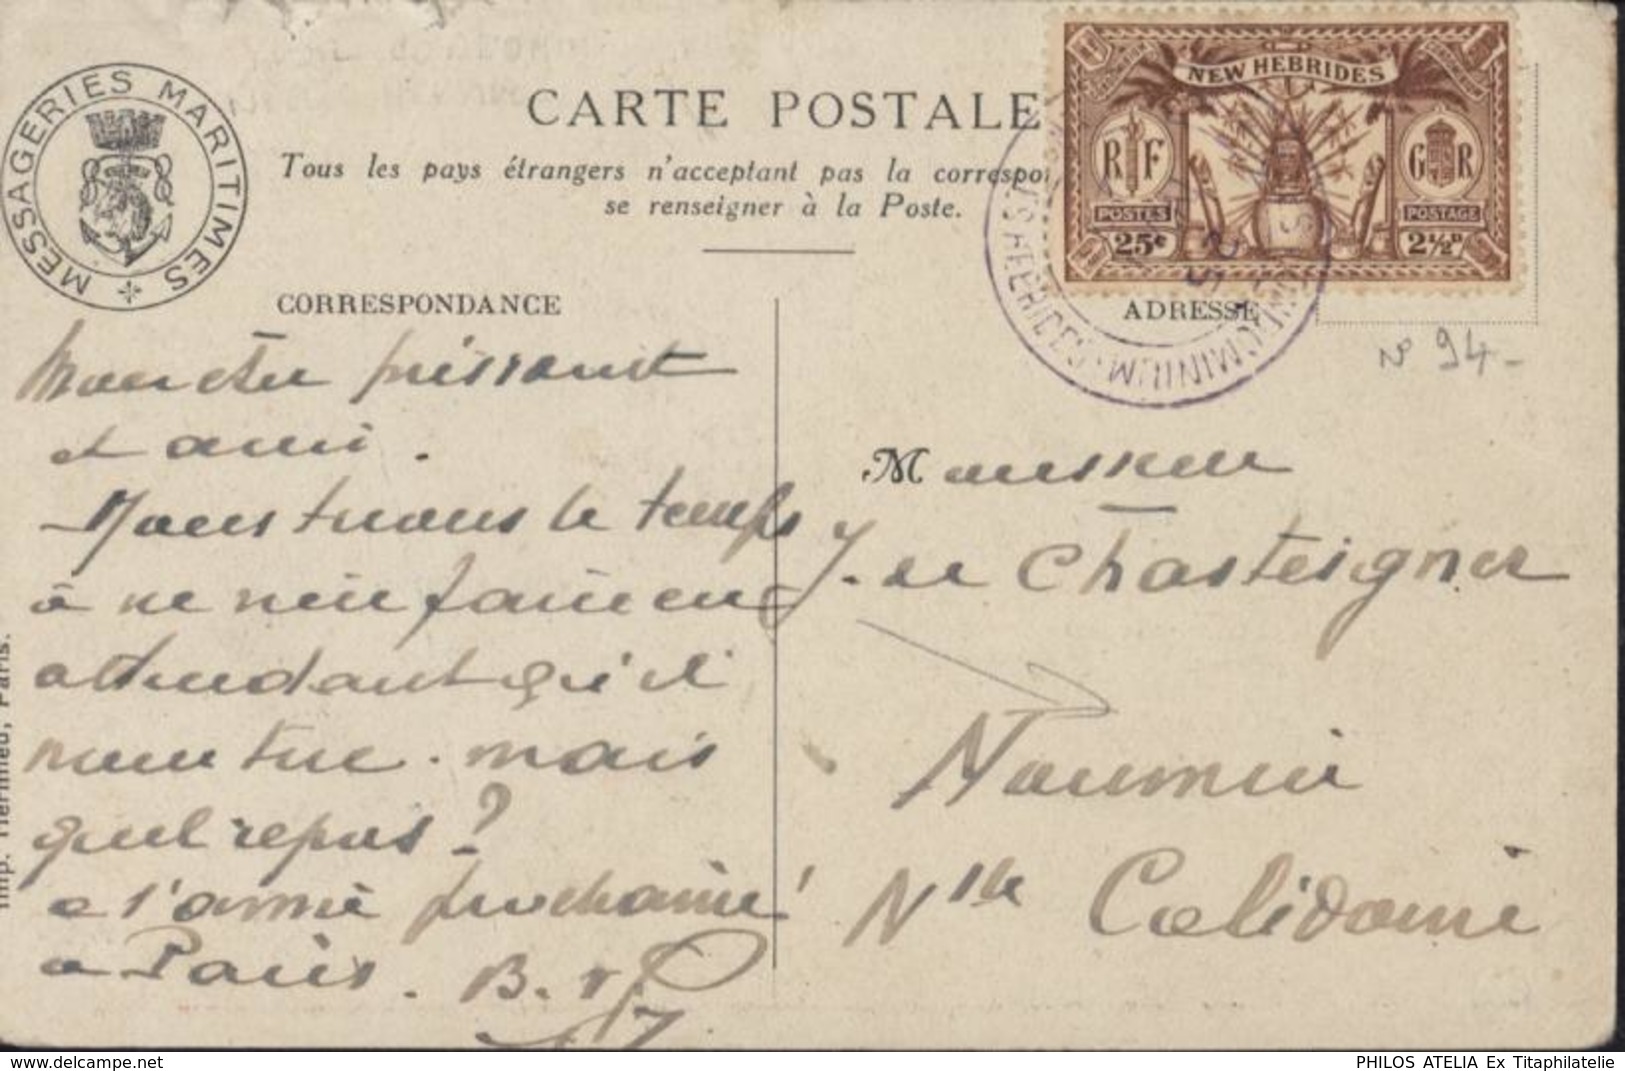 MESSAGERIES MARITIMES
CARTE POSTALE
Tous les pays étrangers n'acceptant pas la correspon
se renseigner à la Poste.
NEW HEBRIDES
RF
GR
POSTES
POSTAGE
25c
2½D
CORRESPONDANCE
ADRESSE
N° 94-
Mon cher puissant
et ami.
Nous tuons le temps
à ne rien faire en
attendant qu'il
nous tue. mais
quel repos?
a l'année prochaine!
a Paris. B.
Monsieur
J. de Chasteigner
Nouméa
Nlle Calédonie
Imp. Hermieu, Paris.
PHILOS ATELIA Ex Titaphilatelie
www.delcampe.net